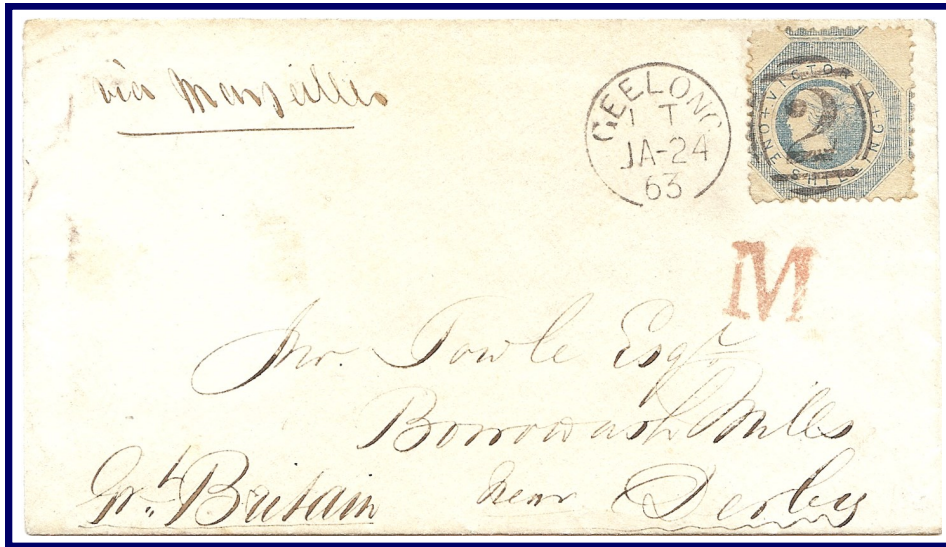 via Marseilles
GEELONG
1 T
JA-24
63
+ VICTORIA +
ONE SHILLING
2
M
Jno. Towle Esqr
Borrowash Mills
near Derby
Grt Britain